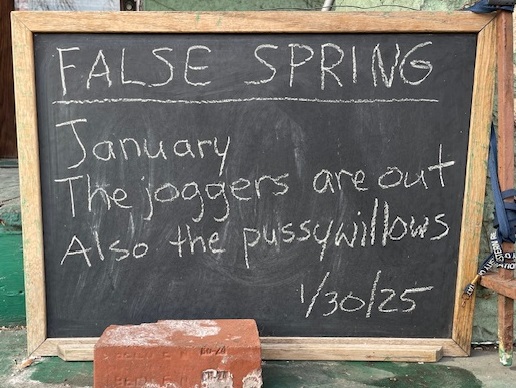 FALSE SPRING
January
The joggers are out
Also the pussywillows
1/30/25